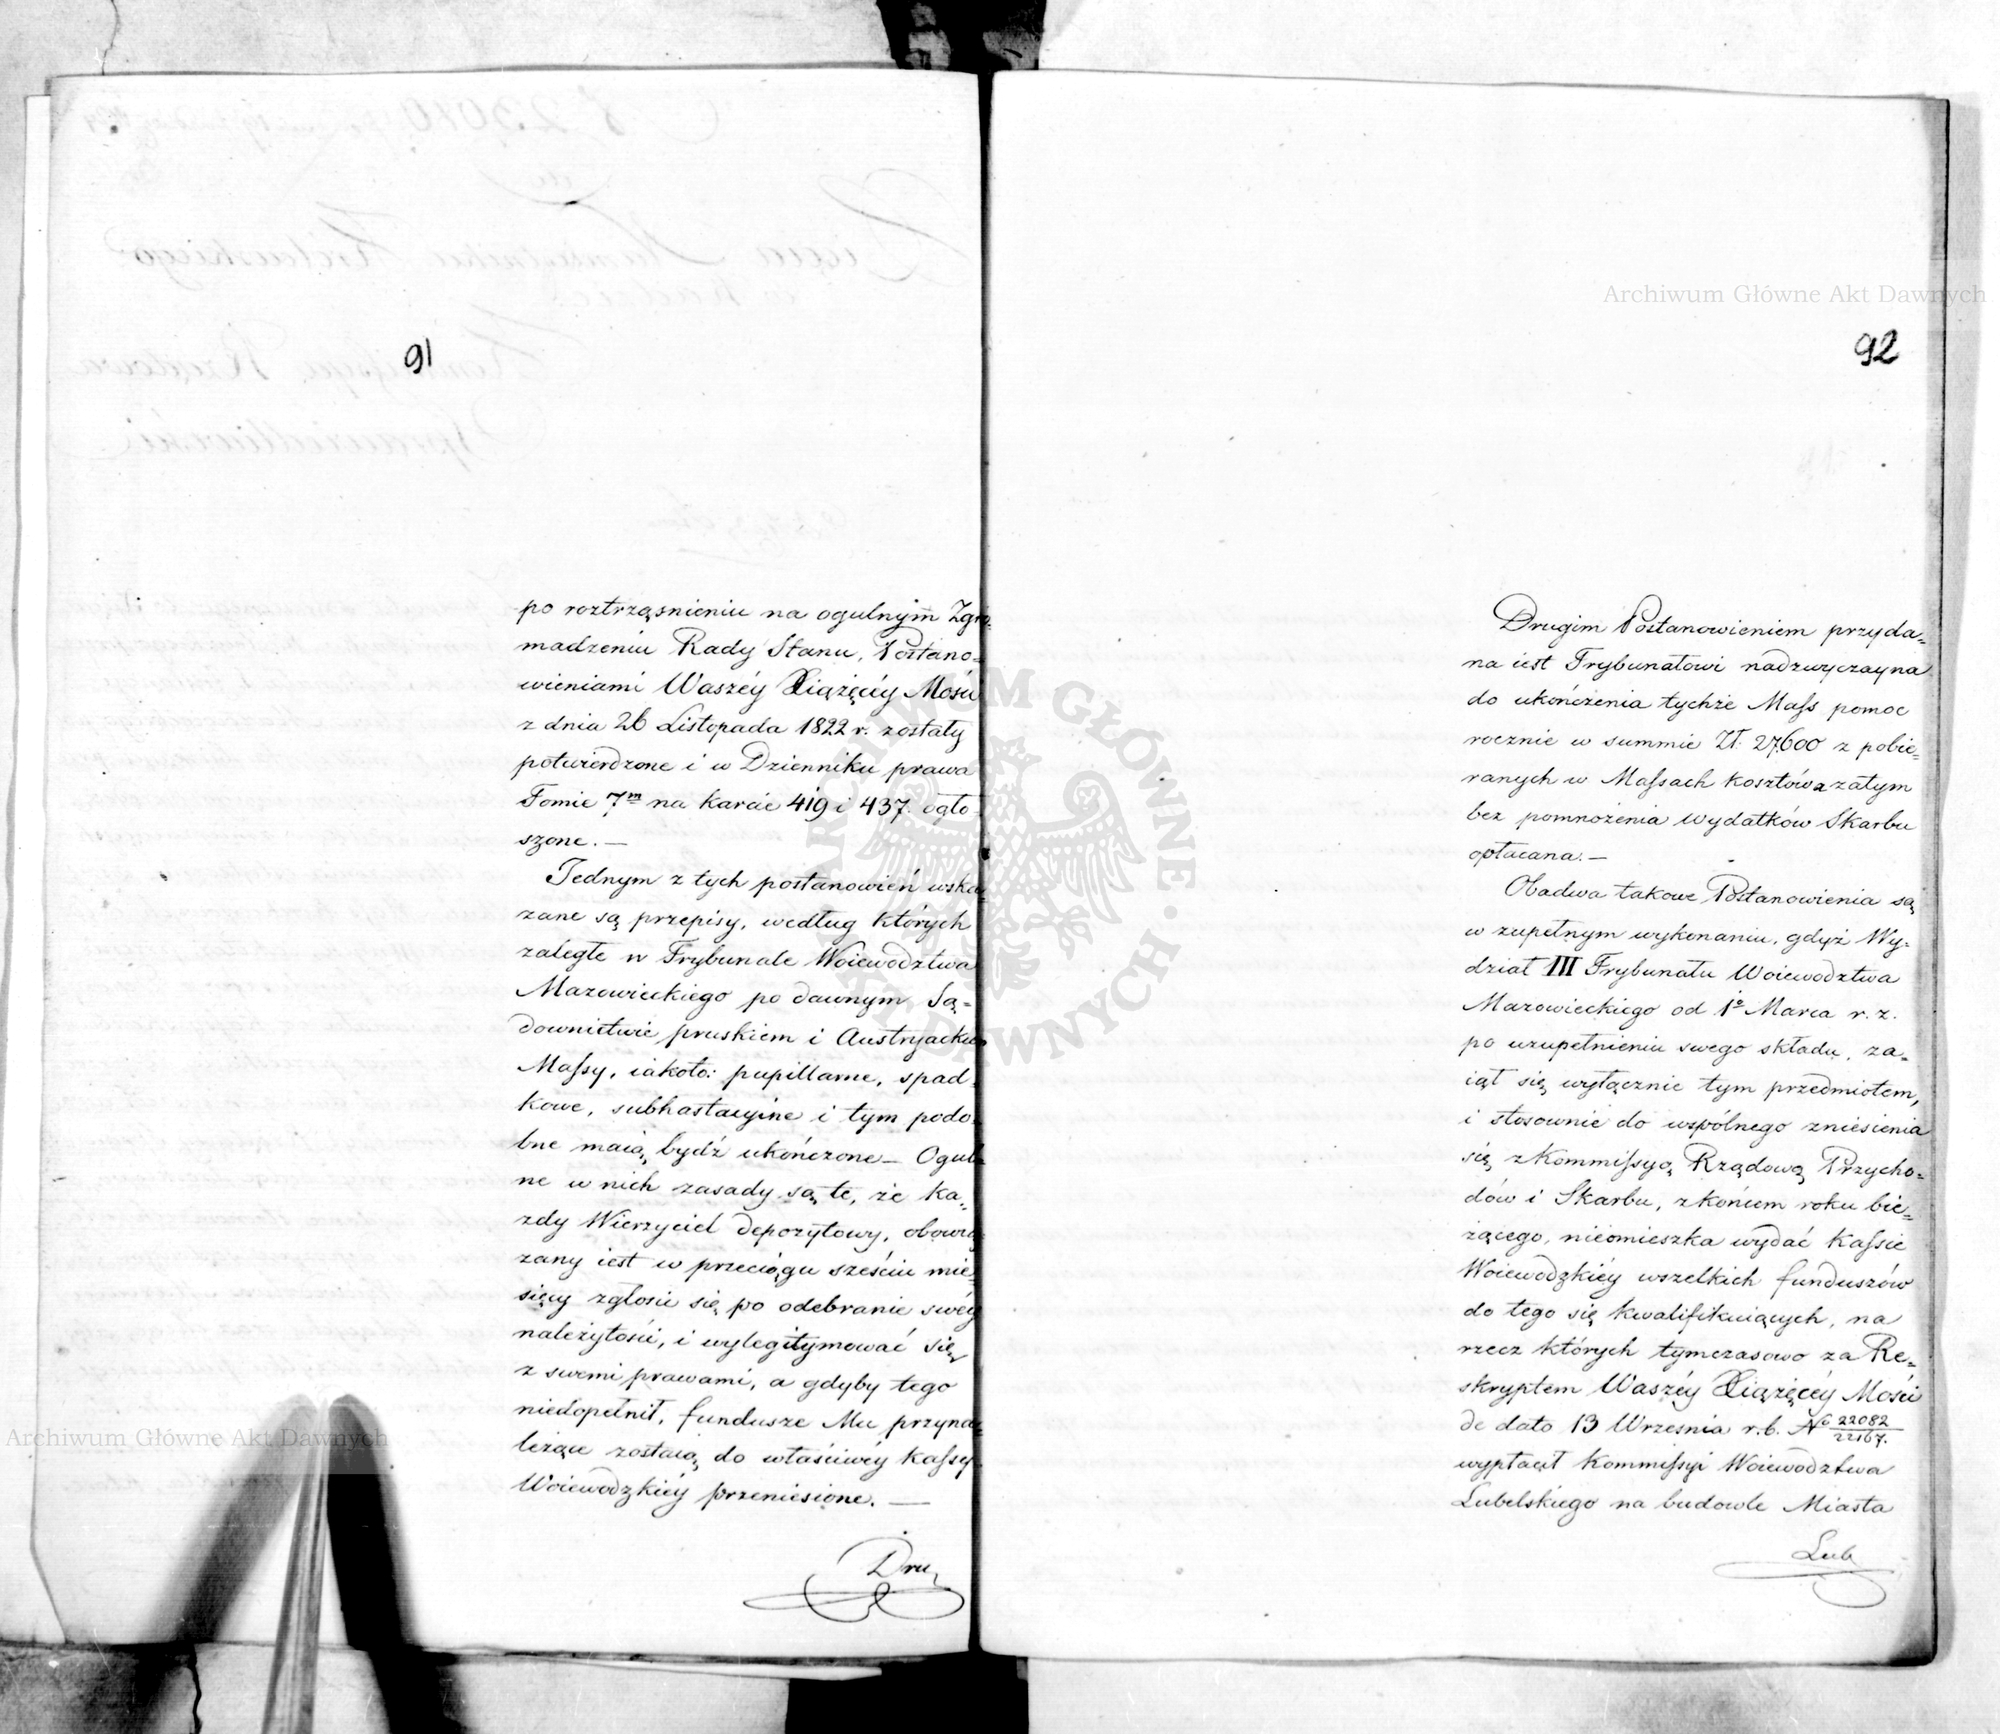 91
po roztrząsnieniu na ogulnym Zgro-
madzeniu Rady Stanu, Postano-
wieniami Waszéy Xiążęcéy Mości
z dnia 26 Listopada 1822 r. zostały
potwierdzone i w Dzienniku prawa
Tomie 7m na karcie 419 i 437. ogło-
szone. —
Jednym z tych postanowień wska-
zane są przepisy, według których
zaległe w Trybunale Woiewodztwa
Mazowieckiego po dawnym Są-
downictwie pruskiem i Austryackiem
Massy, iakoto: pupillarne, spad-
kowe, subhastacyine i tym podo-
bne maią bydź ukończone — Ogul-
ne w nich zasady są te, że ka-
zdy Wierzyciel depozytowy, obowią-
zany iest w przeciągu sześciu mie-
sięcy zgłosić się po odebranie swéy
należytości, i wylegitymować się
z swemi prawami, a gdyby tego
niedopełnił, fundusze Mu przyna-
leżące zostaią do właściwéy Kassy
Woiewodzkiéy przeniesione. —
Dru,
92
Drugim Postanowieniem przyda-
na iest Trybunałowi nadzwyczayna
do ukończenia tychże Mass pomoc
rocznie w summie Zł: 27,600 z pobie-
ranych w Massach kosztów a zatym
bez pomnożenia wydatków Skarbu
opłacana. —
Obadwa takowe Postanowienia są
w zupełnym wykonaniu, gdyż Wy-
dział III Trybunału Woiewodztwa
Mazowieckiego od 1o Marca r. z.
po uzupełnieniu swego składu, za-
iął się wyłącznie tym przedmiotem,
i stosownie do wspólnego zniesienia
się z Kommissyą Rządową Przycho-
dów i Skarbu, z końcem roku bie-
żącego, nieomieszka wydać Kassie
Woiewodzkiéy wszelkich funduszów
do tego się kwalifikuiących, na
rzecz których tymczasowo za Re-
skryptem Waszéy Xiążęcéy Mości
de dato 13 Wrzesnia r. b. No 22082/22167.
wypłacił Kommissyi Woiewodztwa
Lubelskiego na budowle Miasta
Lub
Archiwum Główne Akt Dawnych
Archiwum Główne Akt Dawnych
ARCHIWUM GŁÓWNE AKT DAWNYCH